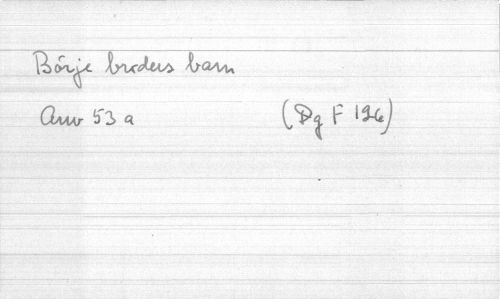 Börje broders barn
Arw 53 a (Dg F 126)